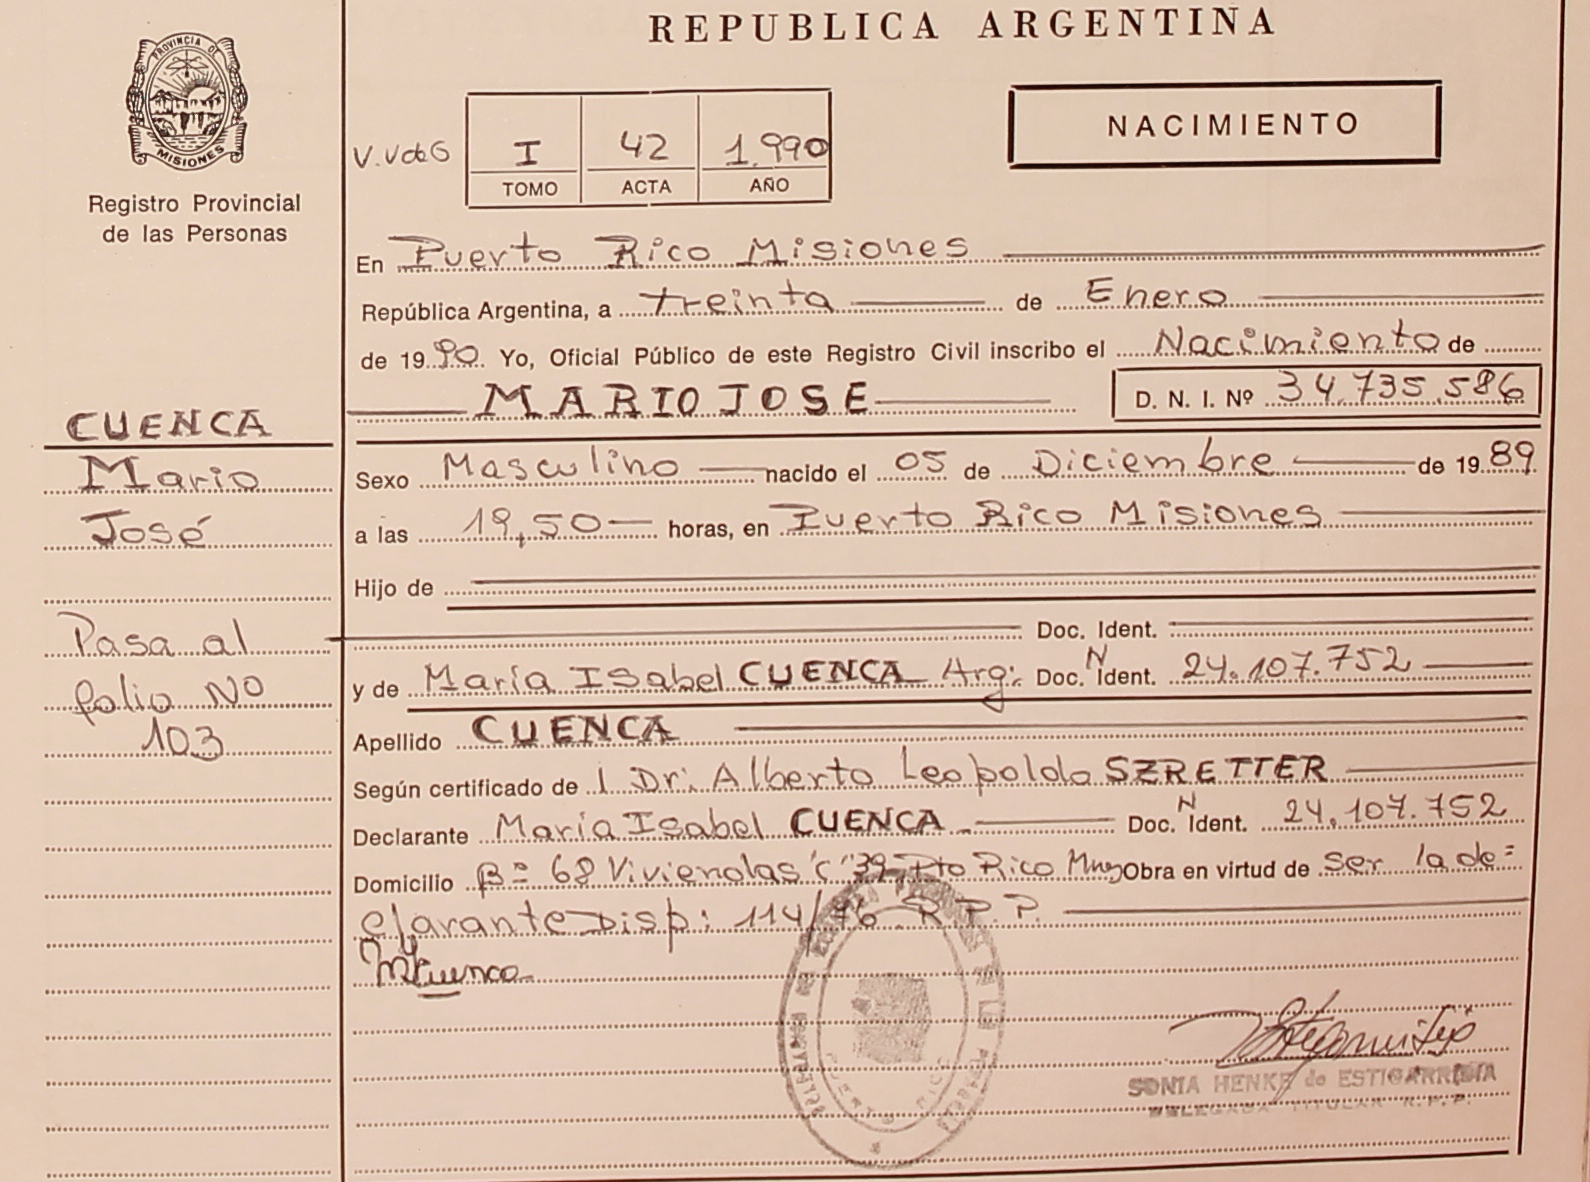 REPUBLICA ARGENTINA
PROVINCIA DE
MISIONES
Registro Provincial
de las Personas
NACIMIENTO
V.V de G
I 42 1.990
TOMO ACTA AÑO
En Puerto Rico Misiones
República Argentina, a treinta de Enero
de 1990. Yo, Oficial Público de este Registro Civil inscribo el Nacimiento de
MARIO JOSE D. N. I. Nº 34.735.586
CUENCA
Mario
José
Pasa al
folio Nº
103
Sexo Masculino nacido el 05 de Diciembre de 1989
a las 19,50 horas, en Puerto Rico Misiones
Hijo de
Doc. Ident.
y de María Isabel CUENCA Arg. Doc. N Ident. 24.107.752
Apellido CUENCA
Según certificado de l Dr. Alberto Leopoldo SZRETTER
Declarante María Isabel CUENCA Doc. N Ident. 24.107.752
Domicilio Bº 68 Viviendas "C" 39 Pto Rico Mnes Obra en virtud de ser la de=
clarante Disp: 114/76 R.P.P.
PUERTO RICO
SONIA HENKE de ESTIGARRIBIA
DELEGADA TITULAR R.P.P.